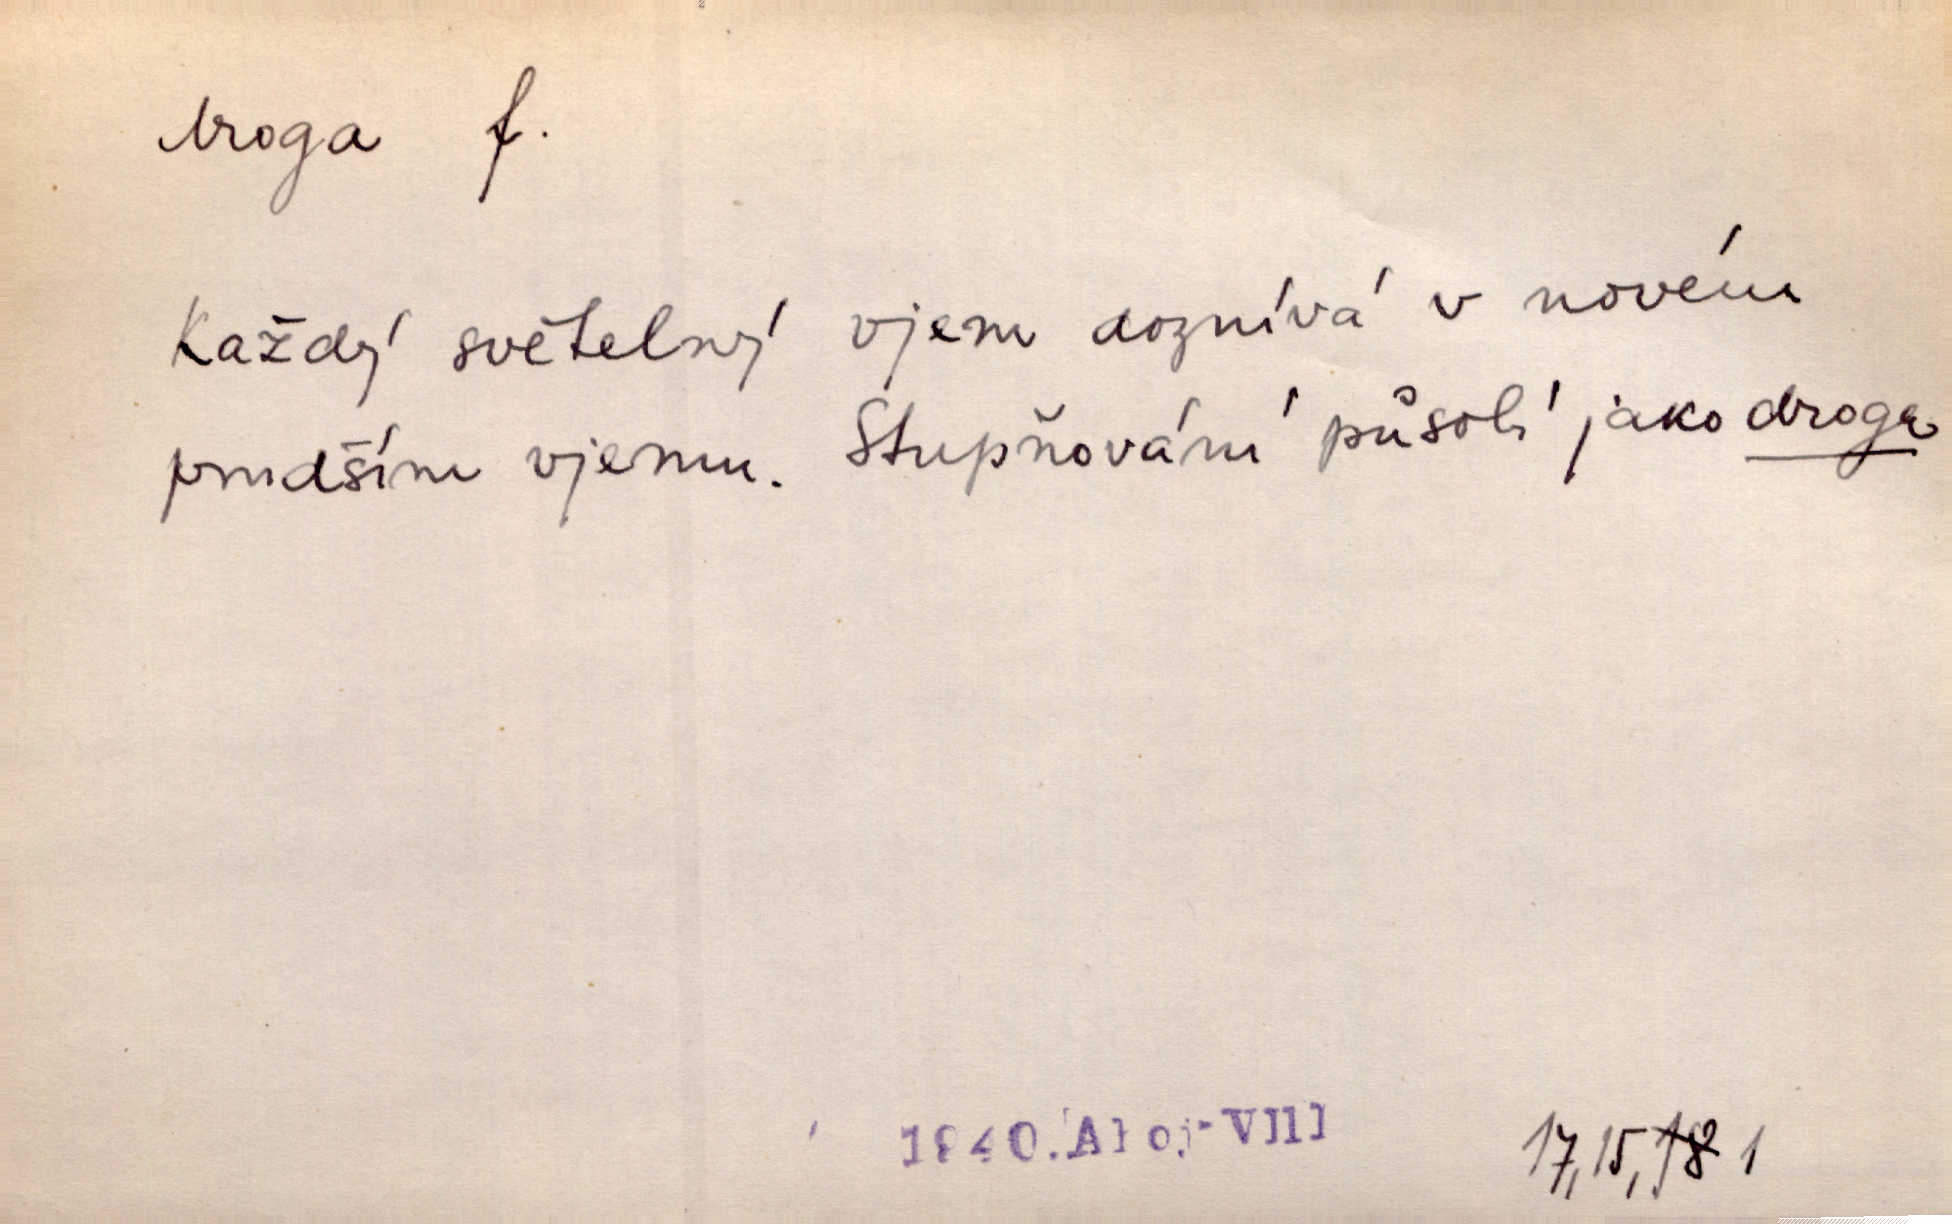 droga f.
Každý světelný vjem doznívá v novém
prudším vjemu. Stupňování působí jako droga
1940. Aloj-VIII
17, 15, 18 1